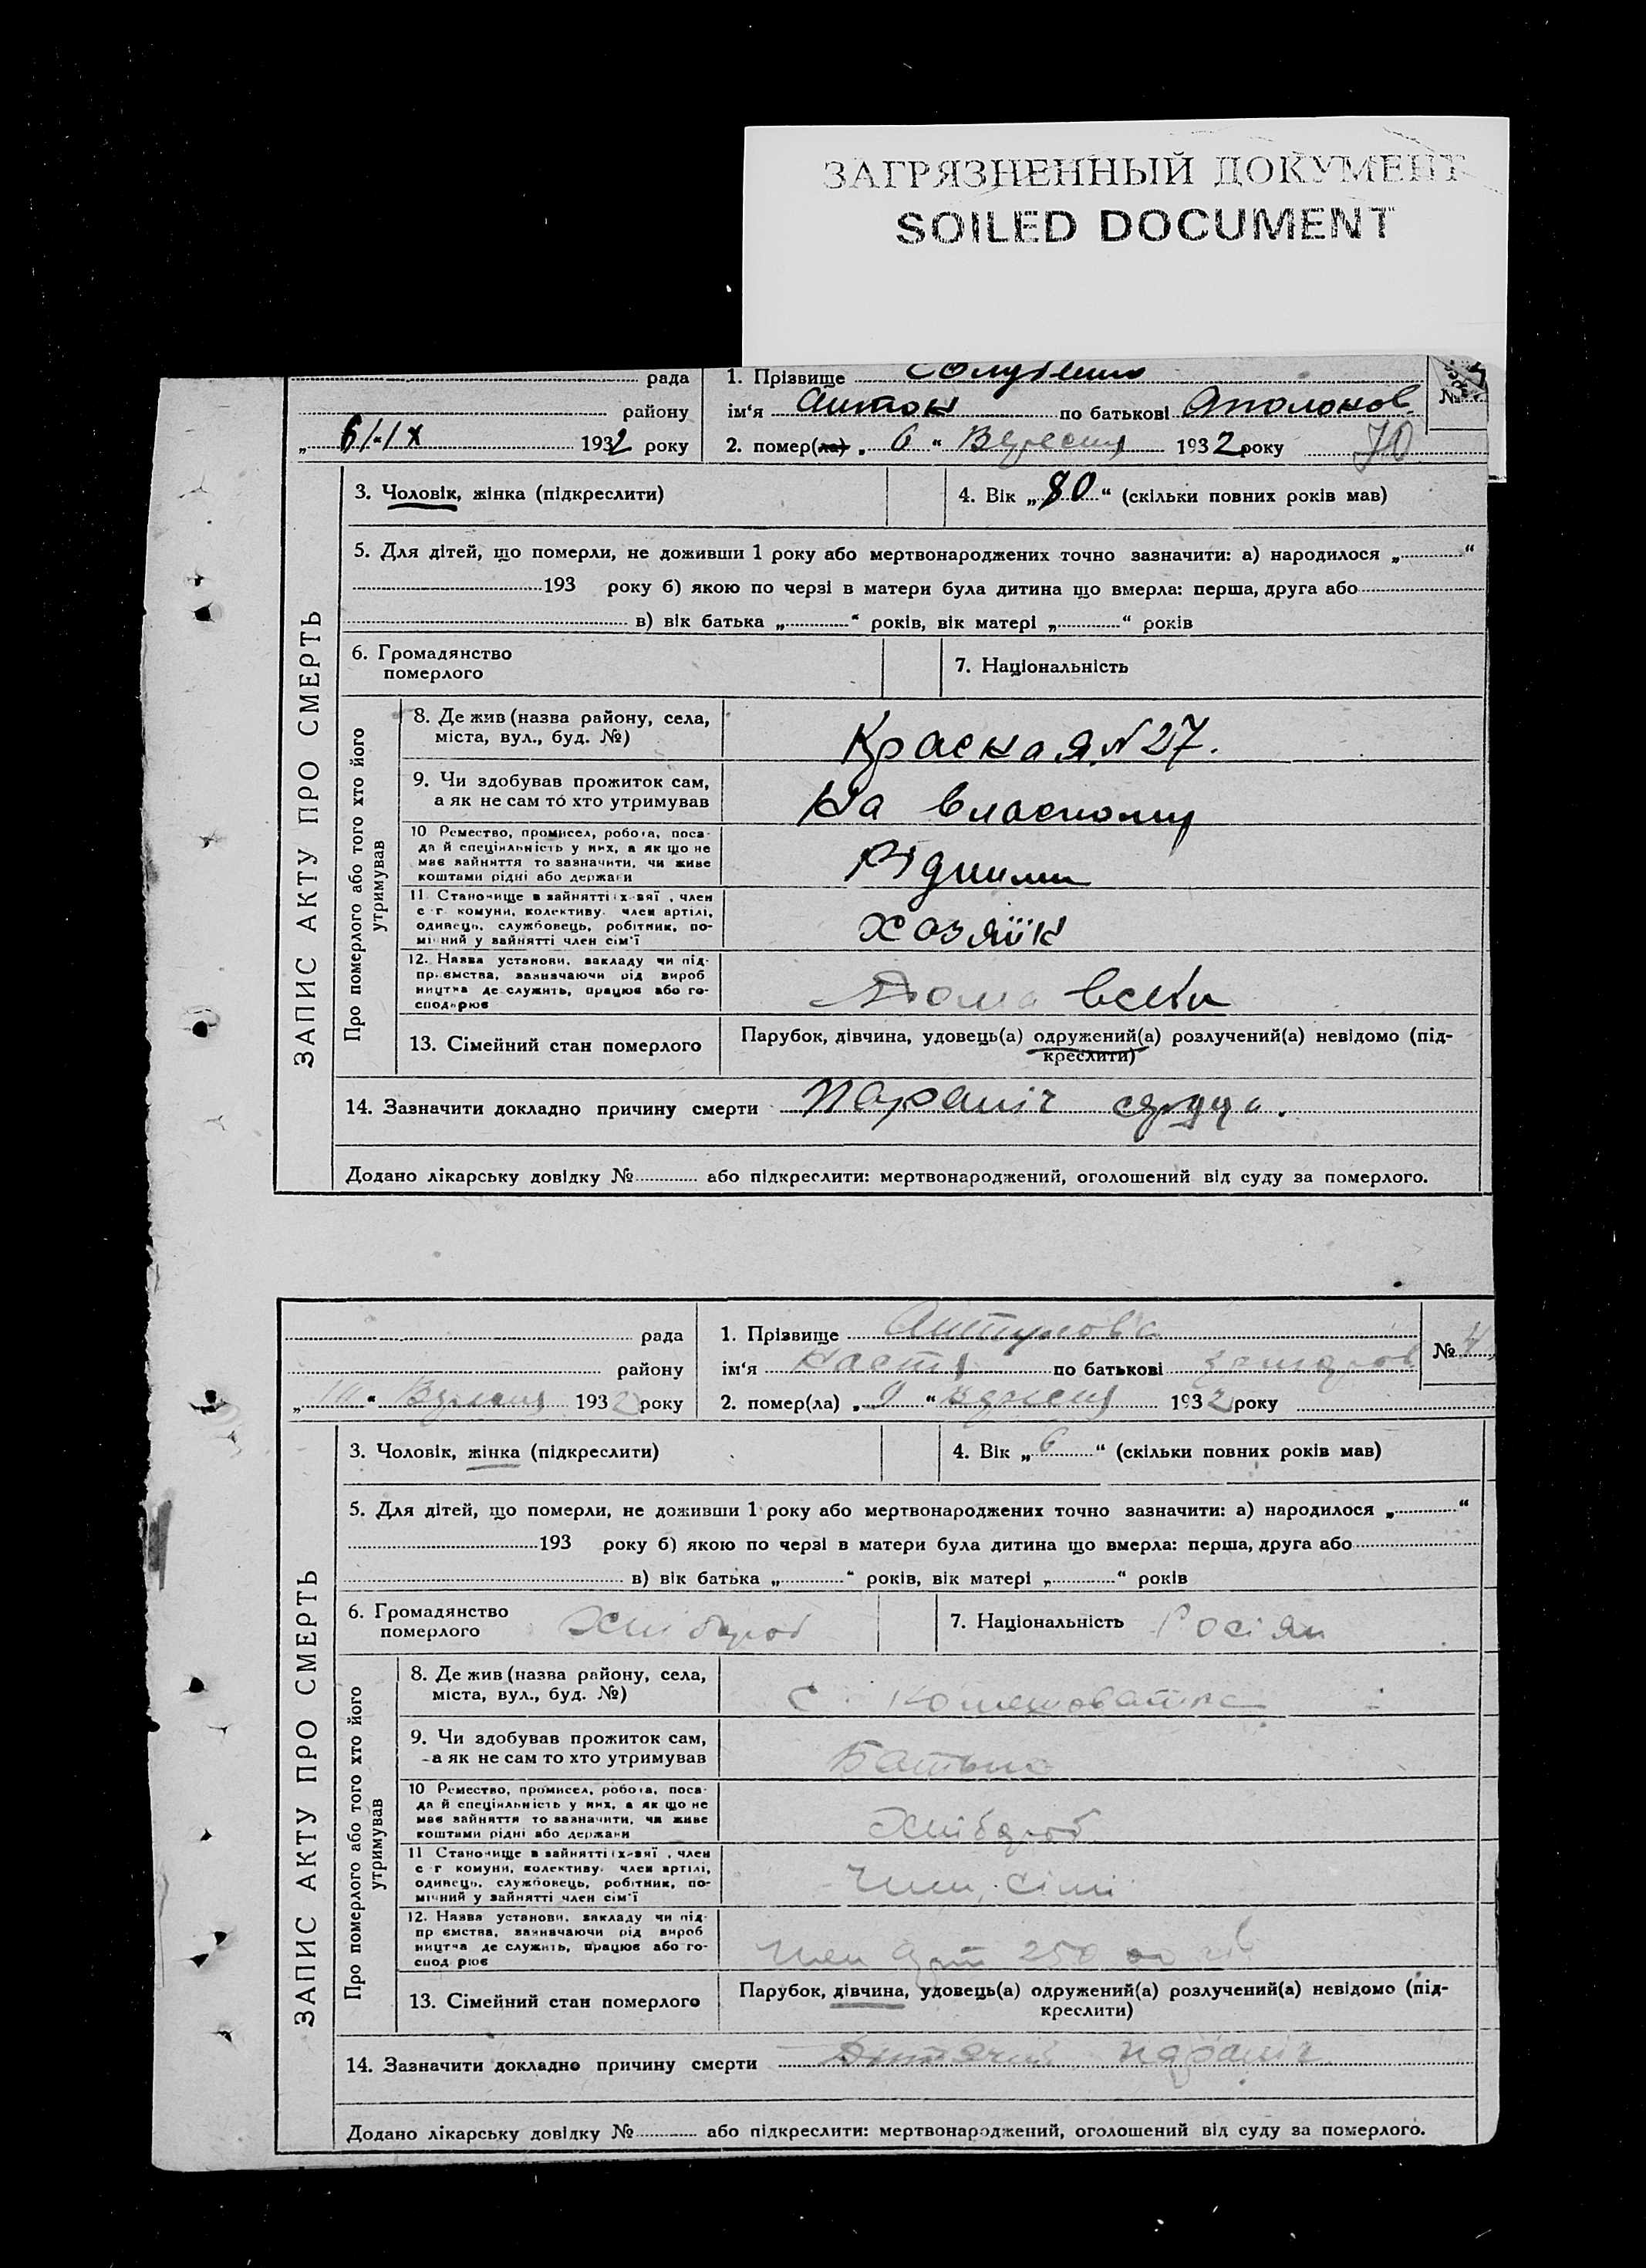 ЗАГРЯЗНЕННЫЙ ДОКУМЕНТ
SOILED DOCUMENT
рада
1. Прізвище
№
району
ім'я Антон по батькові Аполонов.
„ 6/-IX 1932 року
2. помер(ла) „ 6 “ Вересня 1932 року 70
ЗАПИС АКТУ ПРО СМЕРТЬ
3. Чоловік, жінка (підкреслити)
4. Вік „ 80 “ (скільки повних років мав)
5. Для дітей, що померли, не доживши 1 року або мертвонароджених точно зазначити: а) народилося „ “
193 року б) якою по черзі в матери була дитина що вмерла: перша, друга або
в) вік батька „ “ років, вік матері „ “ років
6. Громадянство
померлого
7. Національність
Про померлого або того хто його
утримував
8. Де жив (назва району, села,
міста, вул., буд. №)
Красная N 27.
9. Чи здобував прожиток сам,
а як не сам то хто утримував
На власному
10 Ремество, промисел, робота, поса-
да й спеціяльність у них, а як що не
має зайняття то зазначити, чи живе
коштами рідні або держави
11. Становище в зайнятті член
с г комуни, колективу. член артілі,
одинець, службовець, робітник, по-
мічний у зайнятті член сім'ї
Хозяїн
12. Назва установи, закладу чи під-
приємства, зазначаючи рід вироб
ництва де служить, працює або го-
сподарює
Дома
13. Сімейний стан померлого
Парубок, дівчина, удовець(а) одружений(а) розлучений(а) невідомо (під-
креслити)
14. Зазначити докладно причину смерти Параліч сердца.
Додано лікарську довідку № або підкреслити: мертвонароджений, оголошений від суду за померлого.
рада
1. Прізвище
№ 4
району
ім'я Настя по батькові
„ 10 “ Вересня 1932 року
2. помер(ла) „ 9 “ вересня 1932 року
ЗАПИС АКТУ ПРО СМЕРТЬ
3. Чоловік, жінка (підкреслити)
4. Вік „ 6 “ (скільки повних років мав)
5. Для дітей, що померли, не доживши 1 року або мертвонароджених точно зазначити: а) народилося „ “
193 року б) якою по черзі в матери була дитина що вмерла: перша, друга або
в) вік батька „ “ років, вік матері „ “ років
6. Громадянство
померлого
Хлібороб
7. Національність Росіян
Про померлого або того хто його
утримував
8. Де жив (назва району, села,
міста, вул., буд. №)
с.
9. Чи здобував прожиток сам,
а як не сам то хто утримував
Батько
10 Ремество, промисел, робота, поса-
да й спеціяльність у них, а як що не
має зайняття то зазначити, чи живе
коштами рідні або держави
Хлібороб
11 Становище в зайнятті член
с г комуни, колективу. член артілі,
одинець, службовець, робітник, по-
мічний у зайнятті член сім'ї
Член сімі
12. Назва установи, закладу чи під-
приємства, зазначаючи рід вироб
ництва де служить, працює або го-
сподарює
Член 250
13. Сімейний стан померлого
Парубок, дівчина, удовець(а) одружений(а) розлучений(а) невідомо (під-
креслити)
14. Зазначити докладно причину смерти Дитячий параліч
Додано лікарську довідку № або підкреслити: мертвонароджений, оголошений від суду за померлого.